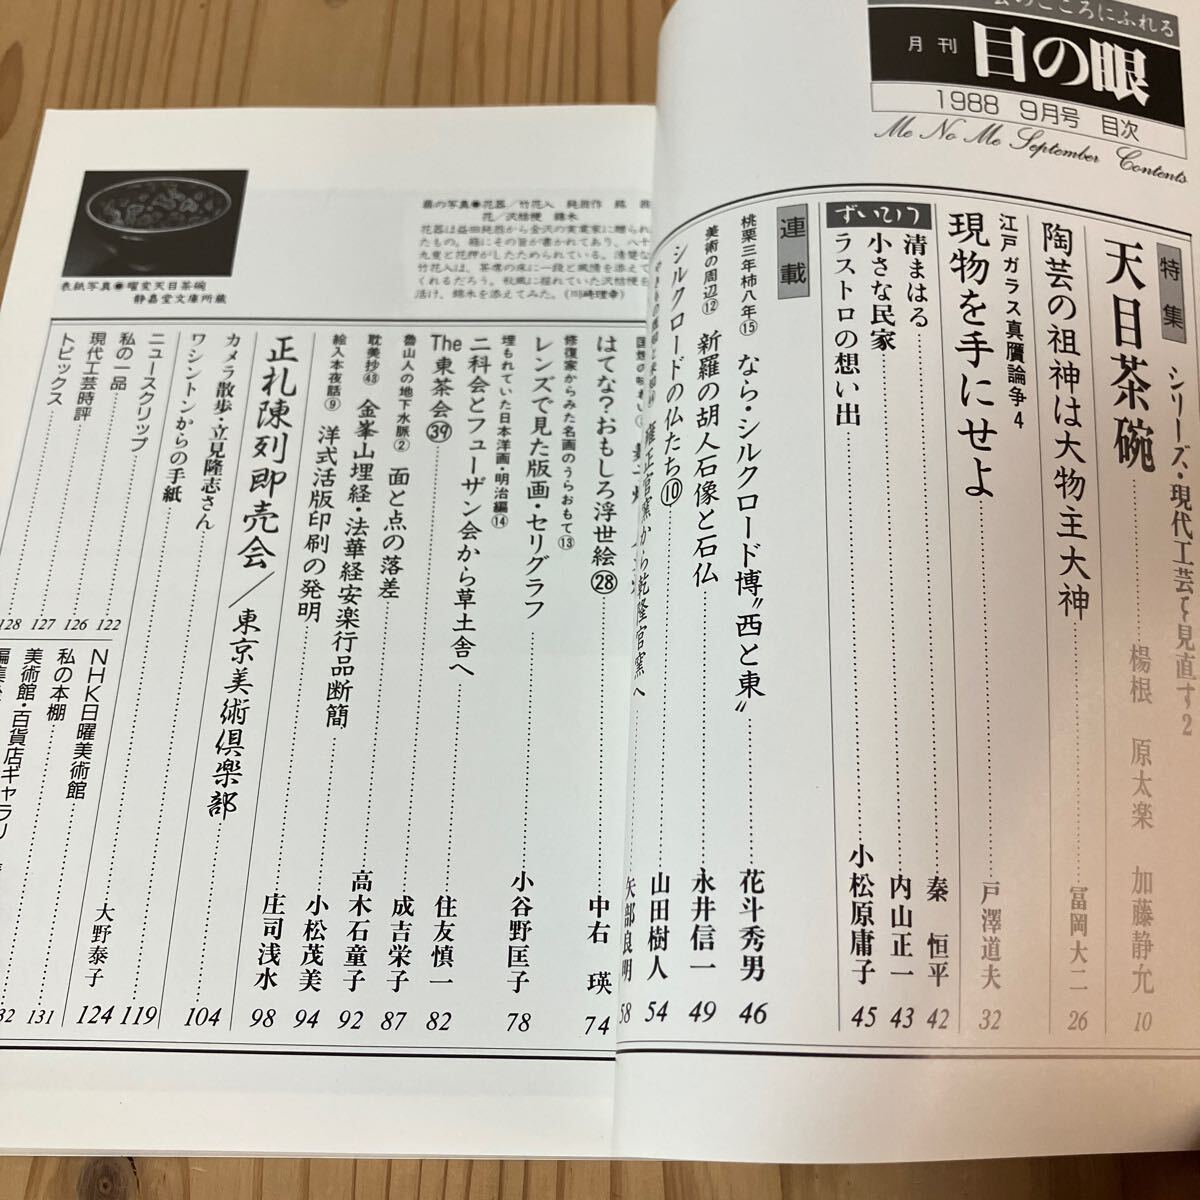 月刊 目の眼
1988 9月号 目次
Me No Me September Contents
特集
シリーズ・現代工芸を見直す2
天目茶碗 楊根 原太楽 加藤静允 10
陶芸の祖神は大物主大神 冨岡大二 26
江戸ガラス真贋論争4
現物を手にせよ 戸澤道夫 32
ずいひつ
清まはる 秦恒平 42
小さな民家 内山正一 43
ラストロの想い出 小松原庸子 45
連載
桃栗三年柿八年⑮ なら・シルクロード博〝西と東〟 花斗秀男 46
美術の周辺⑫ 新羅の胡人石像と石仏 永井信一 49
シルクロードの仏たち⑩ 山田樹人 54
雍正官窯から乾隆官窯へ 矢部良明 58
はてな?おもしろ浮世絵㉘ 中右瑛 74
修復家からみた名画のうらおもて⑬
レンズで見た版画・セリグラフ 小谷野匡子 78
埋もれていた日本洋画・明治編⑭
二科会とフューザン会から草土舎へ 住友慎一 82
The 東茶会㊴ 成吉栄子 87
魯山人の地下水脈② 面と点の落差 高木石童子 92
耽美抄㊸ 金峯山埋経・法華経安楽行品断簡 小松茂美 94
絵入本夜話⑨ 洋式活版印刷の発明 庄司浅水 98
正札陳列即売会/東京美術倶楽部 104
カメラ散歩・立見隆志さん 119
ワシントンからの手紙 大野泰子 124
ニュースクリップ 122
私の一品 126
現代工芸時評 127
トピックス 128
NHK日曜美術館
私の本棚 131
美術館・百貨店ギャラリー
表紙写真●曜変天目茶碗
静嘉堂文庫所蔵
扉の写真●花器/竹花入 鈍翁作 銘
花/沢桔梗 錦木
花器は益田鈍翁から金沢の実業家に贈られ
たもの。箱にその旨が書かれてあり、八十
九叟と花押がしたためられている。清楚な
竹花入は、茶席の床に一段と風情を添えて
くれるだろう。秋風に揺れていた沢桔梗を
活け、錦木を添えてみた。(川崎理幸)